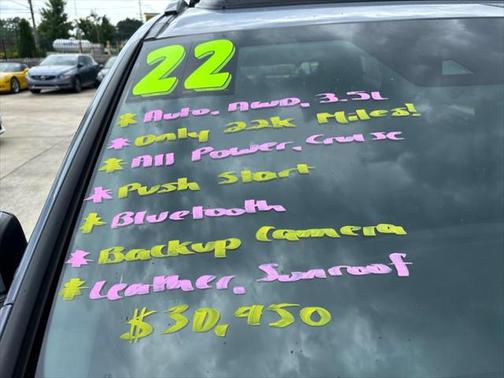 22
* Auto, AWD, 3.5L
* Only 22k Miles!
* All Power, Cruise
* Push Start
* Bluetooth
* Backup Camera
* Leather, Sunroof
$30,950